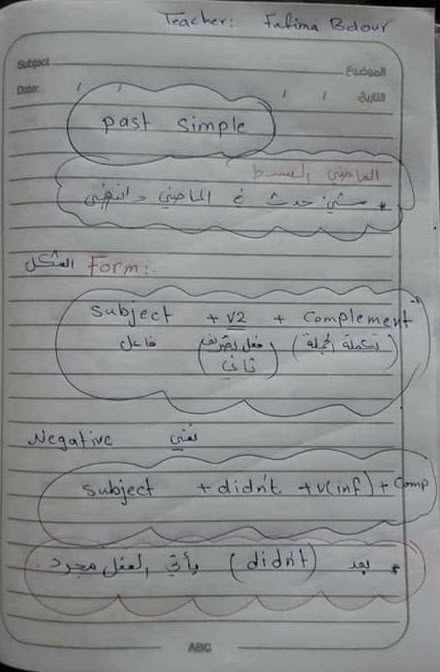 Teacher: Fatima Bdour
Subject الموضوع
Date: / / / / التاريخ
past simple
الماضي البسيط
* شيء حدث في الماضي وانتهى
الشكل Form:.
Subject + V2 + Complement
فاعل (فعل تصريف ثاني) (تكملة الجملة)
Negative نفي
Subject + didn't + V(inf) + Comp
* بعد (didn't) يأتي الفعل مجرد.
ABC